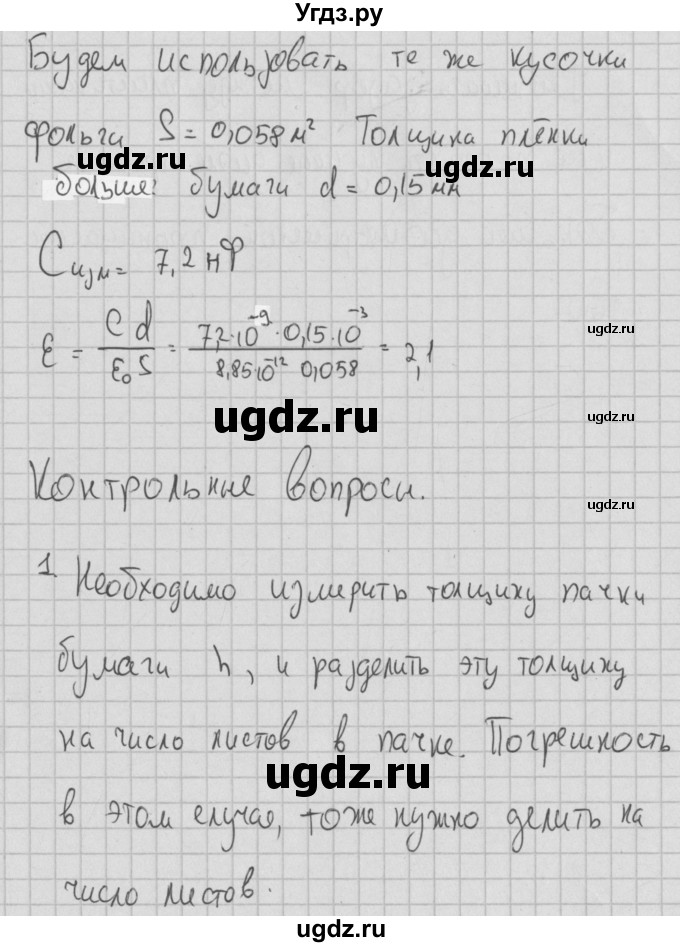 Угдз.ру
Будем использовать те же кусочки
фольги S = 0,058 м² Толщина плёнки
ugdz.ru
ugdz.ru
больше: бумаги d = 0,15 мм
Cизм = 7,2 нФ
ε = Cd / ε₀S = 7,2·10⁻⁹·0,15·10⁻³ / 8,85·10⁻¹² 0,058 = 2,1
ugdz.ru
ugdz.ru
ugdz.ru
Контрольные вопросы.
ugdz.ru
1. Необходимо измерить толщину пачки
ugdz.ru
бумаги h, и разделить эту толщину
ugdz.ru
на число листов в пачке. Погрешность
ugdz.ru
в этом случае, тоже нужно делить на
число листов.
ugdz.ru